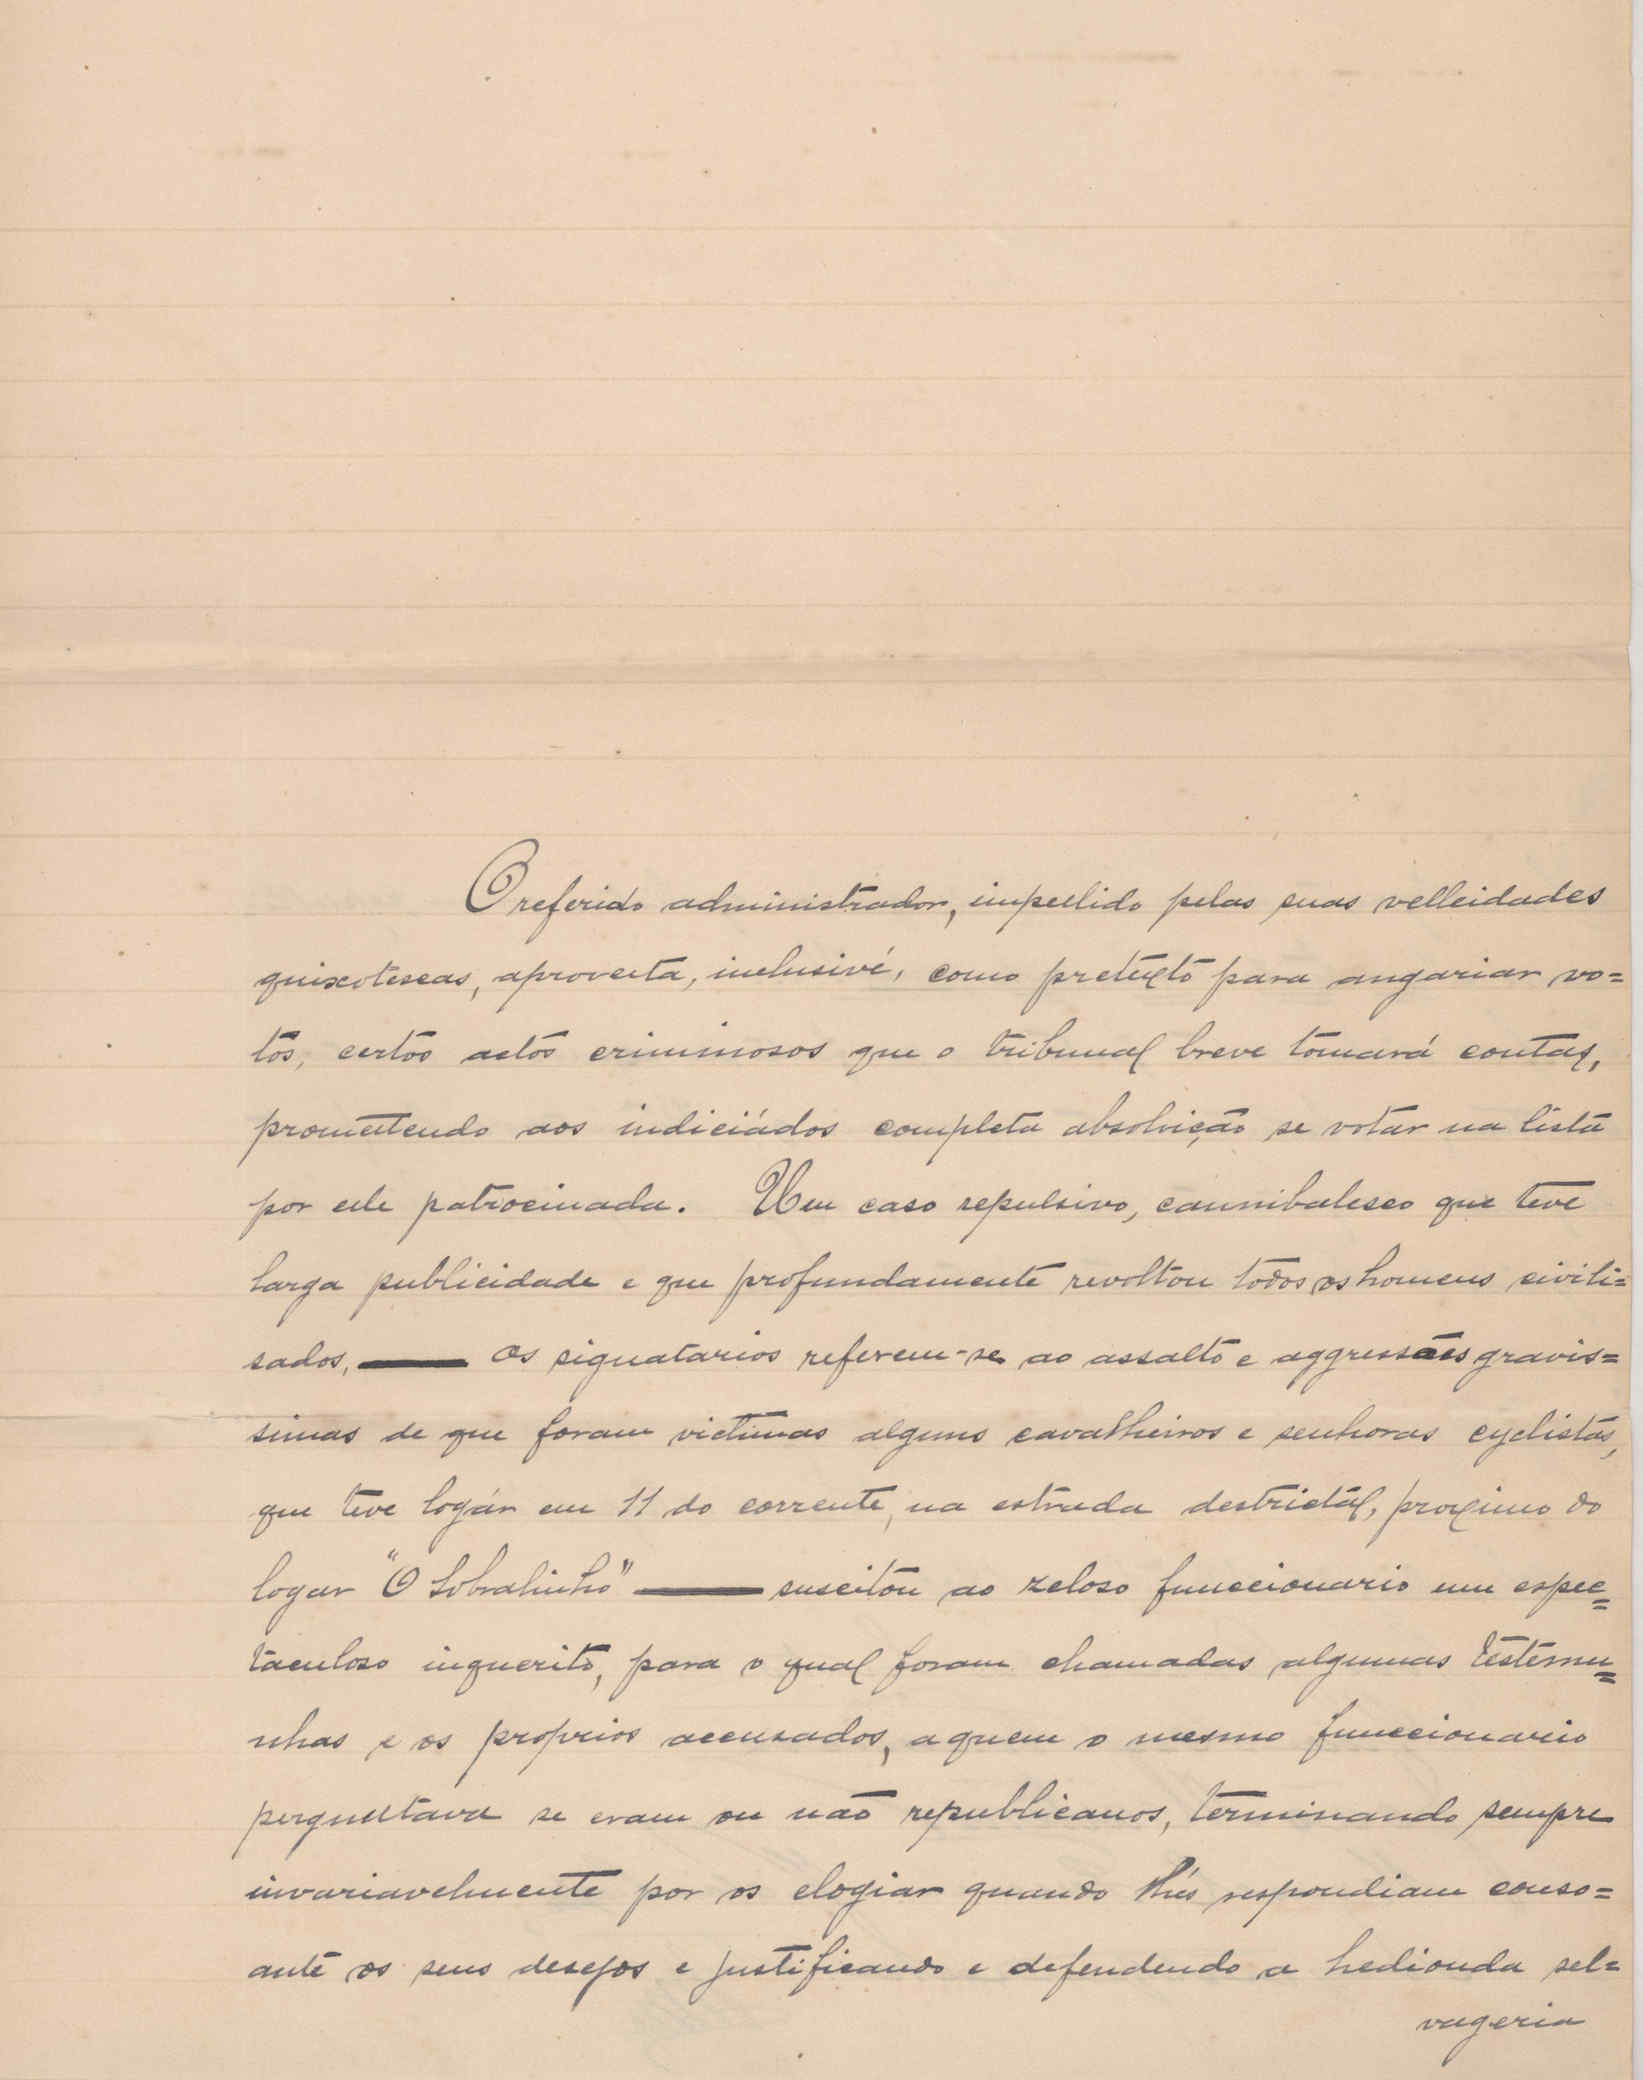 O referido administrador, impellido pelas suas velleidades
quixotescas, aproveita, inclusivé, como pretexto para angariar vo=
tos, certos actos criminosos que o tribunal breve tomará contas,
promettendo aos indiciádos completa absolvição se votar na lista
por elle patrocinada. Um caso repulsivo, cannibalesco que teve
larga publicidade e que profundamente revoltou todos os homens civili=
sados, —— os signatarios referem-se ao assalto e aggressões gravis=
simas de que foram victimas alguns cavalheiros e senhoras cyclistas,
que teve logár em 11 do corrente, na estrada destrictal, proximo do
logar "O Sobralinho" —— suscitou ao zeloso funccionario um espec=
taculoso inquerito, para o qual foram chamadas algumas testemu=
nhas e os proprios accusados, a quem o mesmo funccionario
perguntava se eram ou não republicanos, terminando sempre
invariavelmente por os elogiar quando lhes respondiam conso=
ante os seus desejos e justificando e defendendo a hedionda sel=
vageria